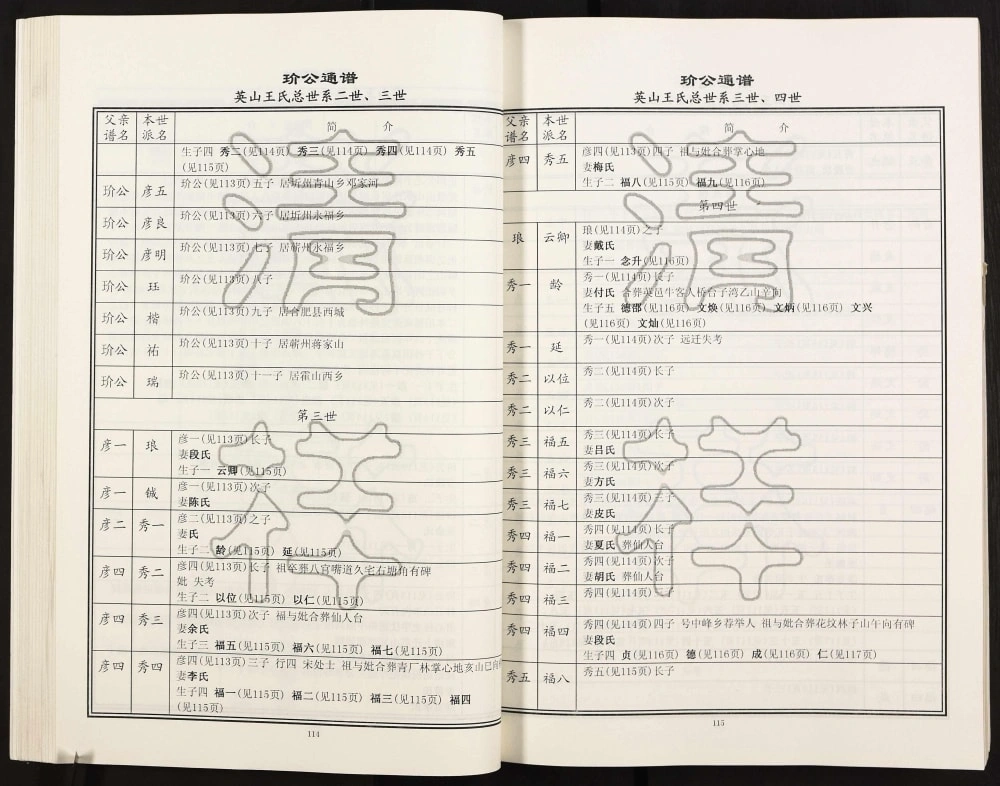 玠公通谱
英山王氏总世系二世、三世
父亲 本世
谱名 派名 简 介
生子四 秀二(见114页) 秀三(见114页) 秀四(见114页) 秀五
(见115页)
玠公 彦五 玠公(见113页)五子 居圻州青山乡邓家河
玠公 彦良 玠公(见113页)六子 居圻州永福乡
玠公 彦明 玠公(见113页)七子 居蕲州永福乡
玠公 珏 玠公(见113页)八子
玠公 楷 玠公(见113页)九子 居合肥县西城
玠公 祐 玠公(见113页)十子 居蕲州蒋家山
玠公 瑞 玠公(见113页)十一子 居霍山西乡
第三世
彦一 琅 彦一(见113页)长子
妻段氏
生子一 云卿(见115页)
彦一 铖 彦一(见113页)次子
妻陈氏
彦二 秀一 彦二(见113页)之子
妻氏
生子二 龄(见115页) 延(见115页)
彦四 秀二 彦四(见113页)长子 祖卒葬八宫嘴道久宅右塘角有碑
妣 失考
生子二 以位(见115页) 以仁(见115页)
彦四 秀三 彦四(见113页)次子 福与妣合葬仙人台
妻余氏
生子三 福五(见115页) 福六(见115页) 福七(见115页)
彦四 秀四 彦四(见113页)三子 行四 宋处士 祖与妣合葬青厂林掌心地亥山巳向
妻李氏
生子四 福一(见115页) 福二(见115页) 福三(见115页) 福四
(见115页)
114
玠公通谱
英山王氏总世系三世、四世
父亲 本世
谱名 派名 简 介
彦四 秀五 彦四(见113页)四子 祖与妣合葬掌心地
妻梅氏
生子二 福八(见115页) 福九(见116页)
第四世
琅 云卿 琅(见114页)之子
妻戴氏
生子一 念升(见116页)
秀一 龄 秀一(见114页)长子
妻付氏 合葬英邑牛客人桥台子湾乙山辛向
生子五 德邵(见116页) 文焕(见116页) 文炳(见116页) 文兴
(见116页) 文灿(见116页)
秀一 延 秀一(见114页)次子 远迁失考
秀二 以位 秀二(见114页)长子
秀二 以仁 秀二(见114页)次子
秀三 福五 秀三(见114页)长子
妻吕氏
秀三 福六 秀三(见114页)次子
妻方氏
秀三 福七 秀三(见114页)三子
妻皮氏
秀四 福一 秀四(见114页)长子
妻夏氏 葬仙人台
秀四 福二 秀四(见114页)次子
妻胡氏 葬仙人台
秀四 福三 秀四(见114页)三子
秀四 福四 秀四(见114页)四子 号中峰乡荐举人 祖与妣合葬花坟林子山午向有碑
妻段氏
生子四 贞(见116页) 德(见116页) 成(见116页) 仁(见117页)
秀五 福八 秀五(见115页)长子
115